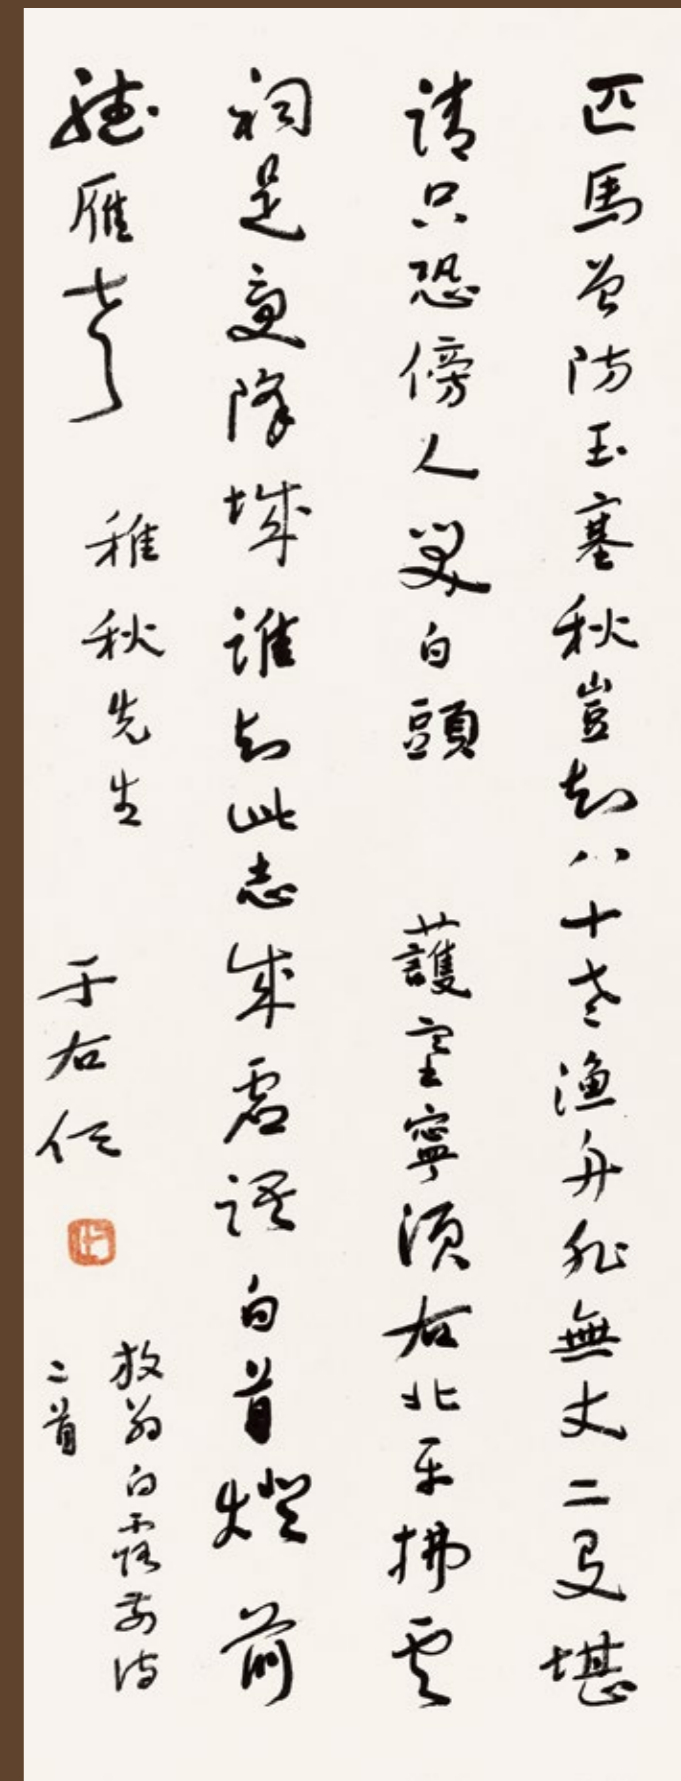 匹馬曾防玉塞秋豈知八十老漁舟非無丈二殳堪
請只恐傍人笑白頭 護塞寧須右北平拂雲
祠是受降城誰知此志成虛語白首燈前
聽雁聲
稚秋先生
于右任
放翁白露前詩
二首